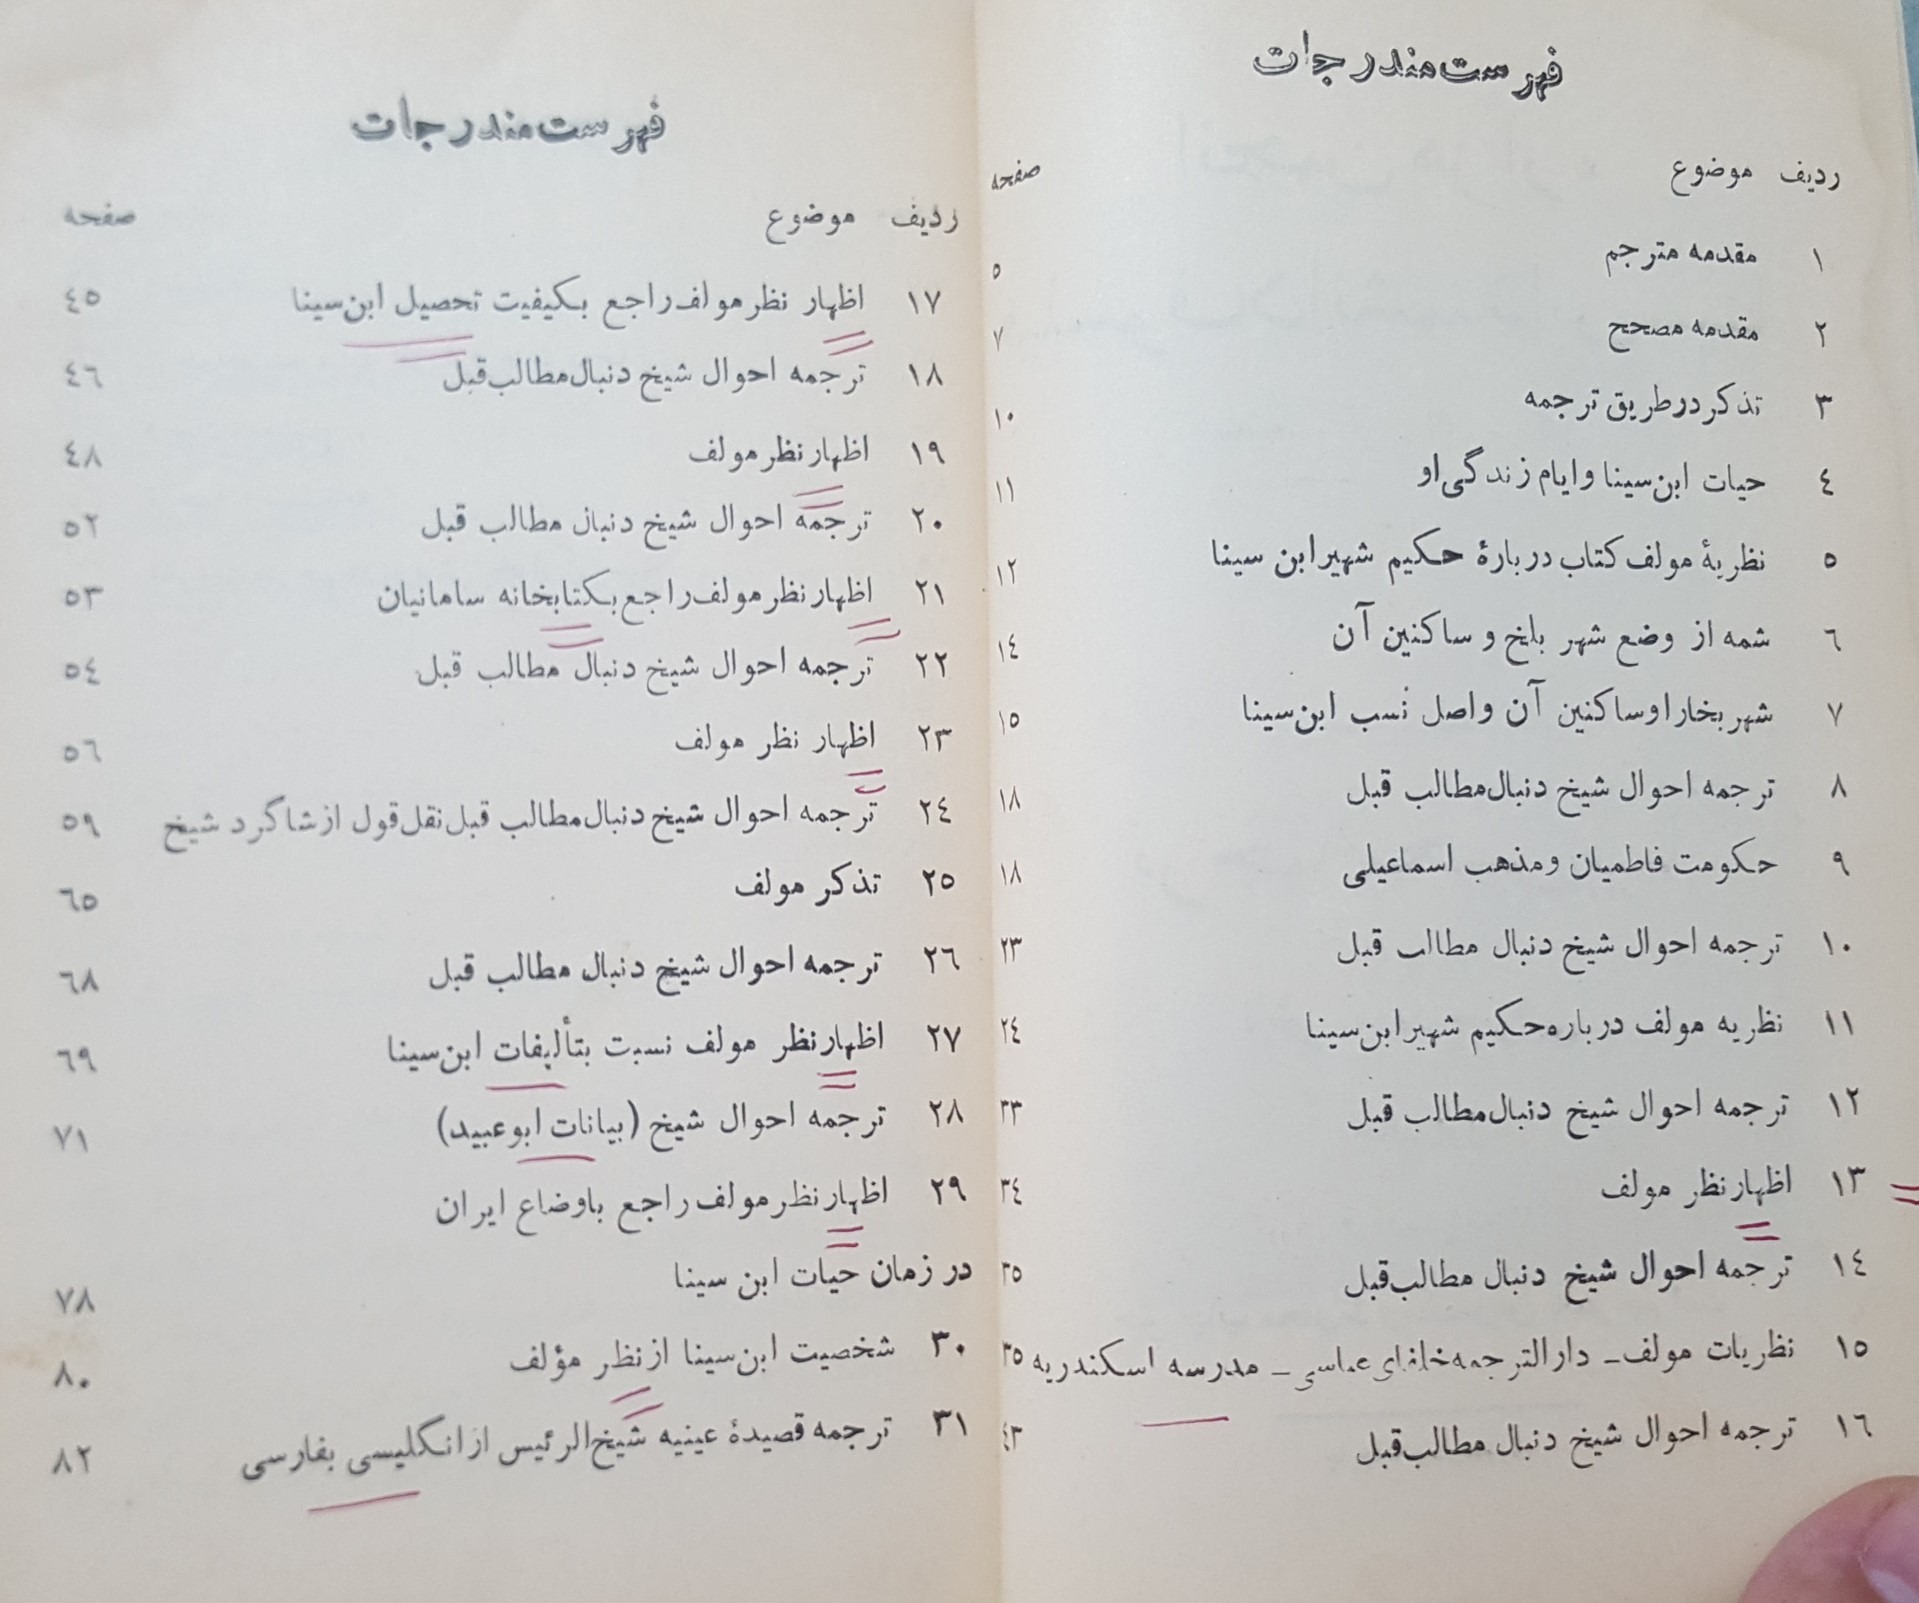 فهرست مندرجات
ردیف موضوع صفحه
۱ مقدمه مترجم ۵
۲ مقدمه مصحح ۷
۳ تذکر در طریق ترجمه ۱۰
٤ حیات ابن‌سینا و ایام زندگی او ۱۱
۵ نظریهٔ مولف کتاب دربارهٔ حکیم شهیر ابن سینا ۱۲
٦ شمه از وضع شهر بلخ و ساکنین آن ۱٤
۷ شهر بخارا و ساکنین آن و اصل نسب ابن‌سینا ۱۵
۸ ترجمه احوال شیخ دنبال مطالب قبل ۱۸
۹ حکومت فاطمیان و مذهب اسماعیلی ۱۸
۱۰ ترجمه احوال شیخ دنبال مطالب قبل ۲۳
۱۱ نظریه مولف درباره حکیم شهیر ابن‌سینا ۲٤
۱۲ ترجمه احوال شیخ دنبال مطالب قبل ۳۳
۱۳ اظهار نظر مولف ۳٤
۱٤ ترجمه احوال شیخ دنبال مطالب قبل ۳۵
۱۵ نظریات مولف - دارالترجمه خلفای عباسی - مدرسه اسکندریه ۳۵
۱٦ ترجمه احوال شیخ دنبال مطالب قبل ٤۳
فهرست مندرجات
ردیف موضوع صفحه
۱۷ اظهار نظر مولف راجع بکیفیت تحصیل ابن‌سینا ٤۵
۱۸ ترجمه احوال شیخ دنبال مطالب قبل ٤٦
۱۹ اظهار نظر مولف ٤۸
۲۰ ترجمه احوال شیخ دنبال مطالب قبل ۵۲
۲۱ اظهار نظر مولف راجع بکتابخانه سامانیان ۵۳
۲۲ ترجمه احوال شیخ دنبال مطالب قبل ۵٤
۲۳ اظهار نظر مولف ۵٦
۲٤ ترجمه احوال شیخ دنبال مطالب قبل نقل قول از شاگرد شیخ ۵۹
۲۵ تذکر مولف ٦۵
۲٦ ترجمه احوال شیخ دنبال مطالب قبل ٦۸
۲۷ اظهار نظر مولف نسبت بتألیفات ابن‌سینا ٦۹
۲۸ ترجمه احوال شیخ (بیانات ابوعبید) ۷۱
۲۹ اظهار نظر مولف راجع باوضاع ایران
در زمان حیات ابن سینا ۷۸
۳۰ شخصیت ابن‌سینا از نظر مؤلف ۸۰
۳۱ ترجمه قصیدهٔ عینیه شیخ‌الرئیس از انگلیسی بفارسی ۸۲